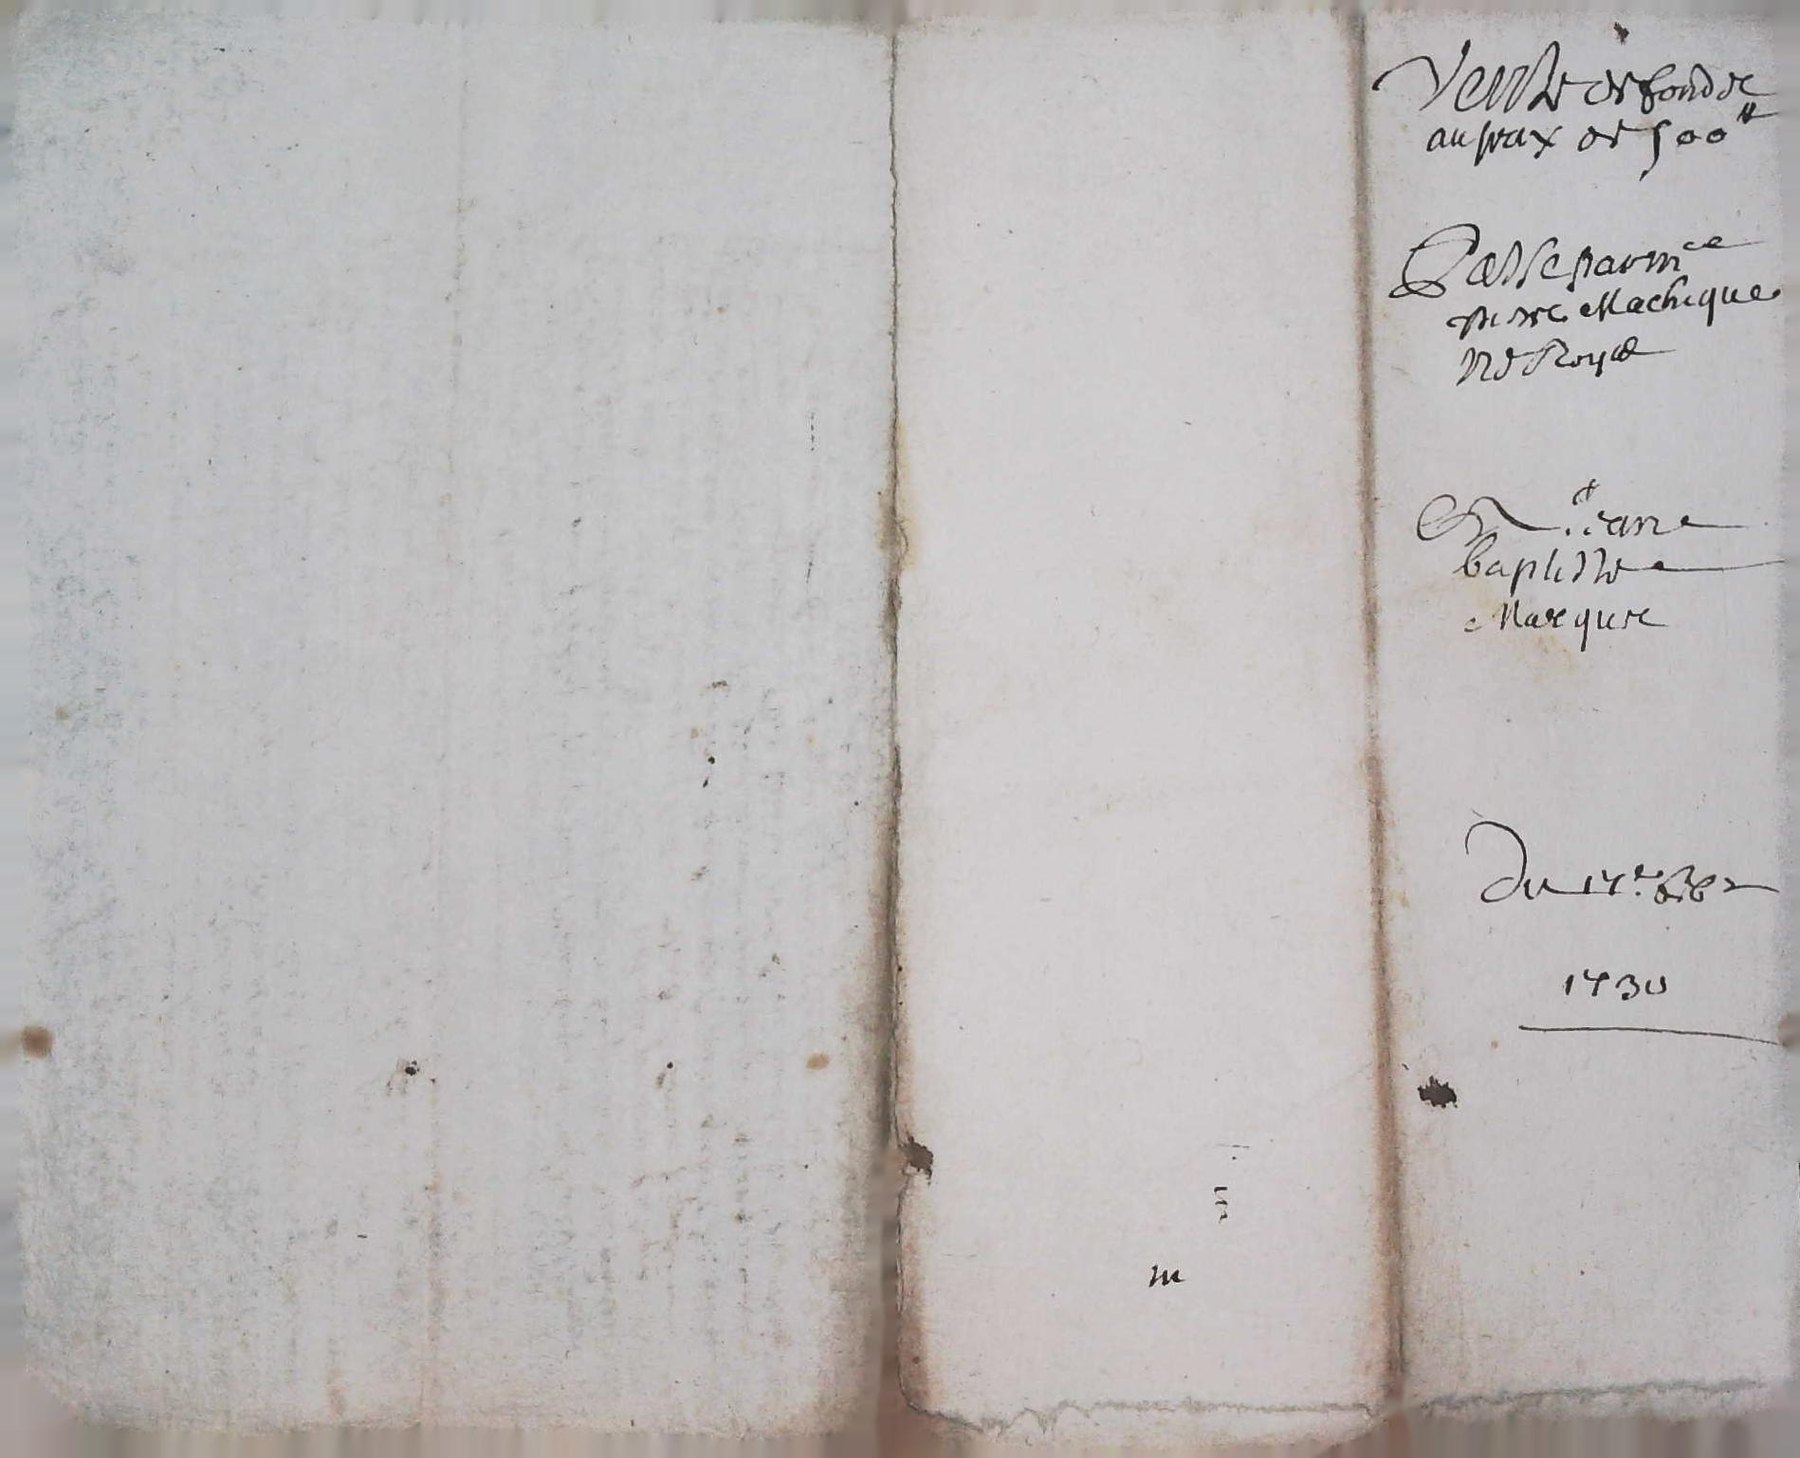 Vente de fondz
au prix de 500ᵗᵗ
Passe par mᵉ
pierre Machique
Nʳᵉ Royal
A Sʳ Jean
baptiste
Marquie
Du 17ᵉ 8bʳᵉ
1730
m